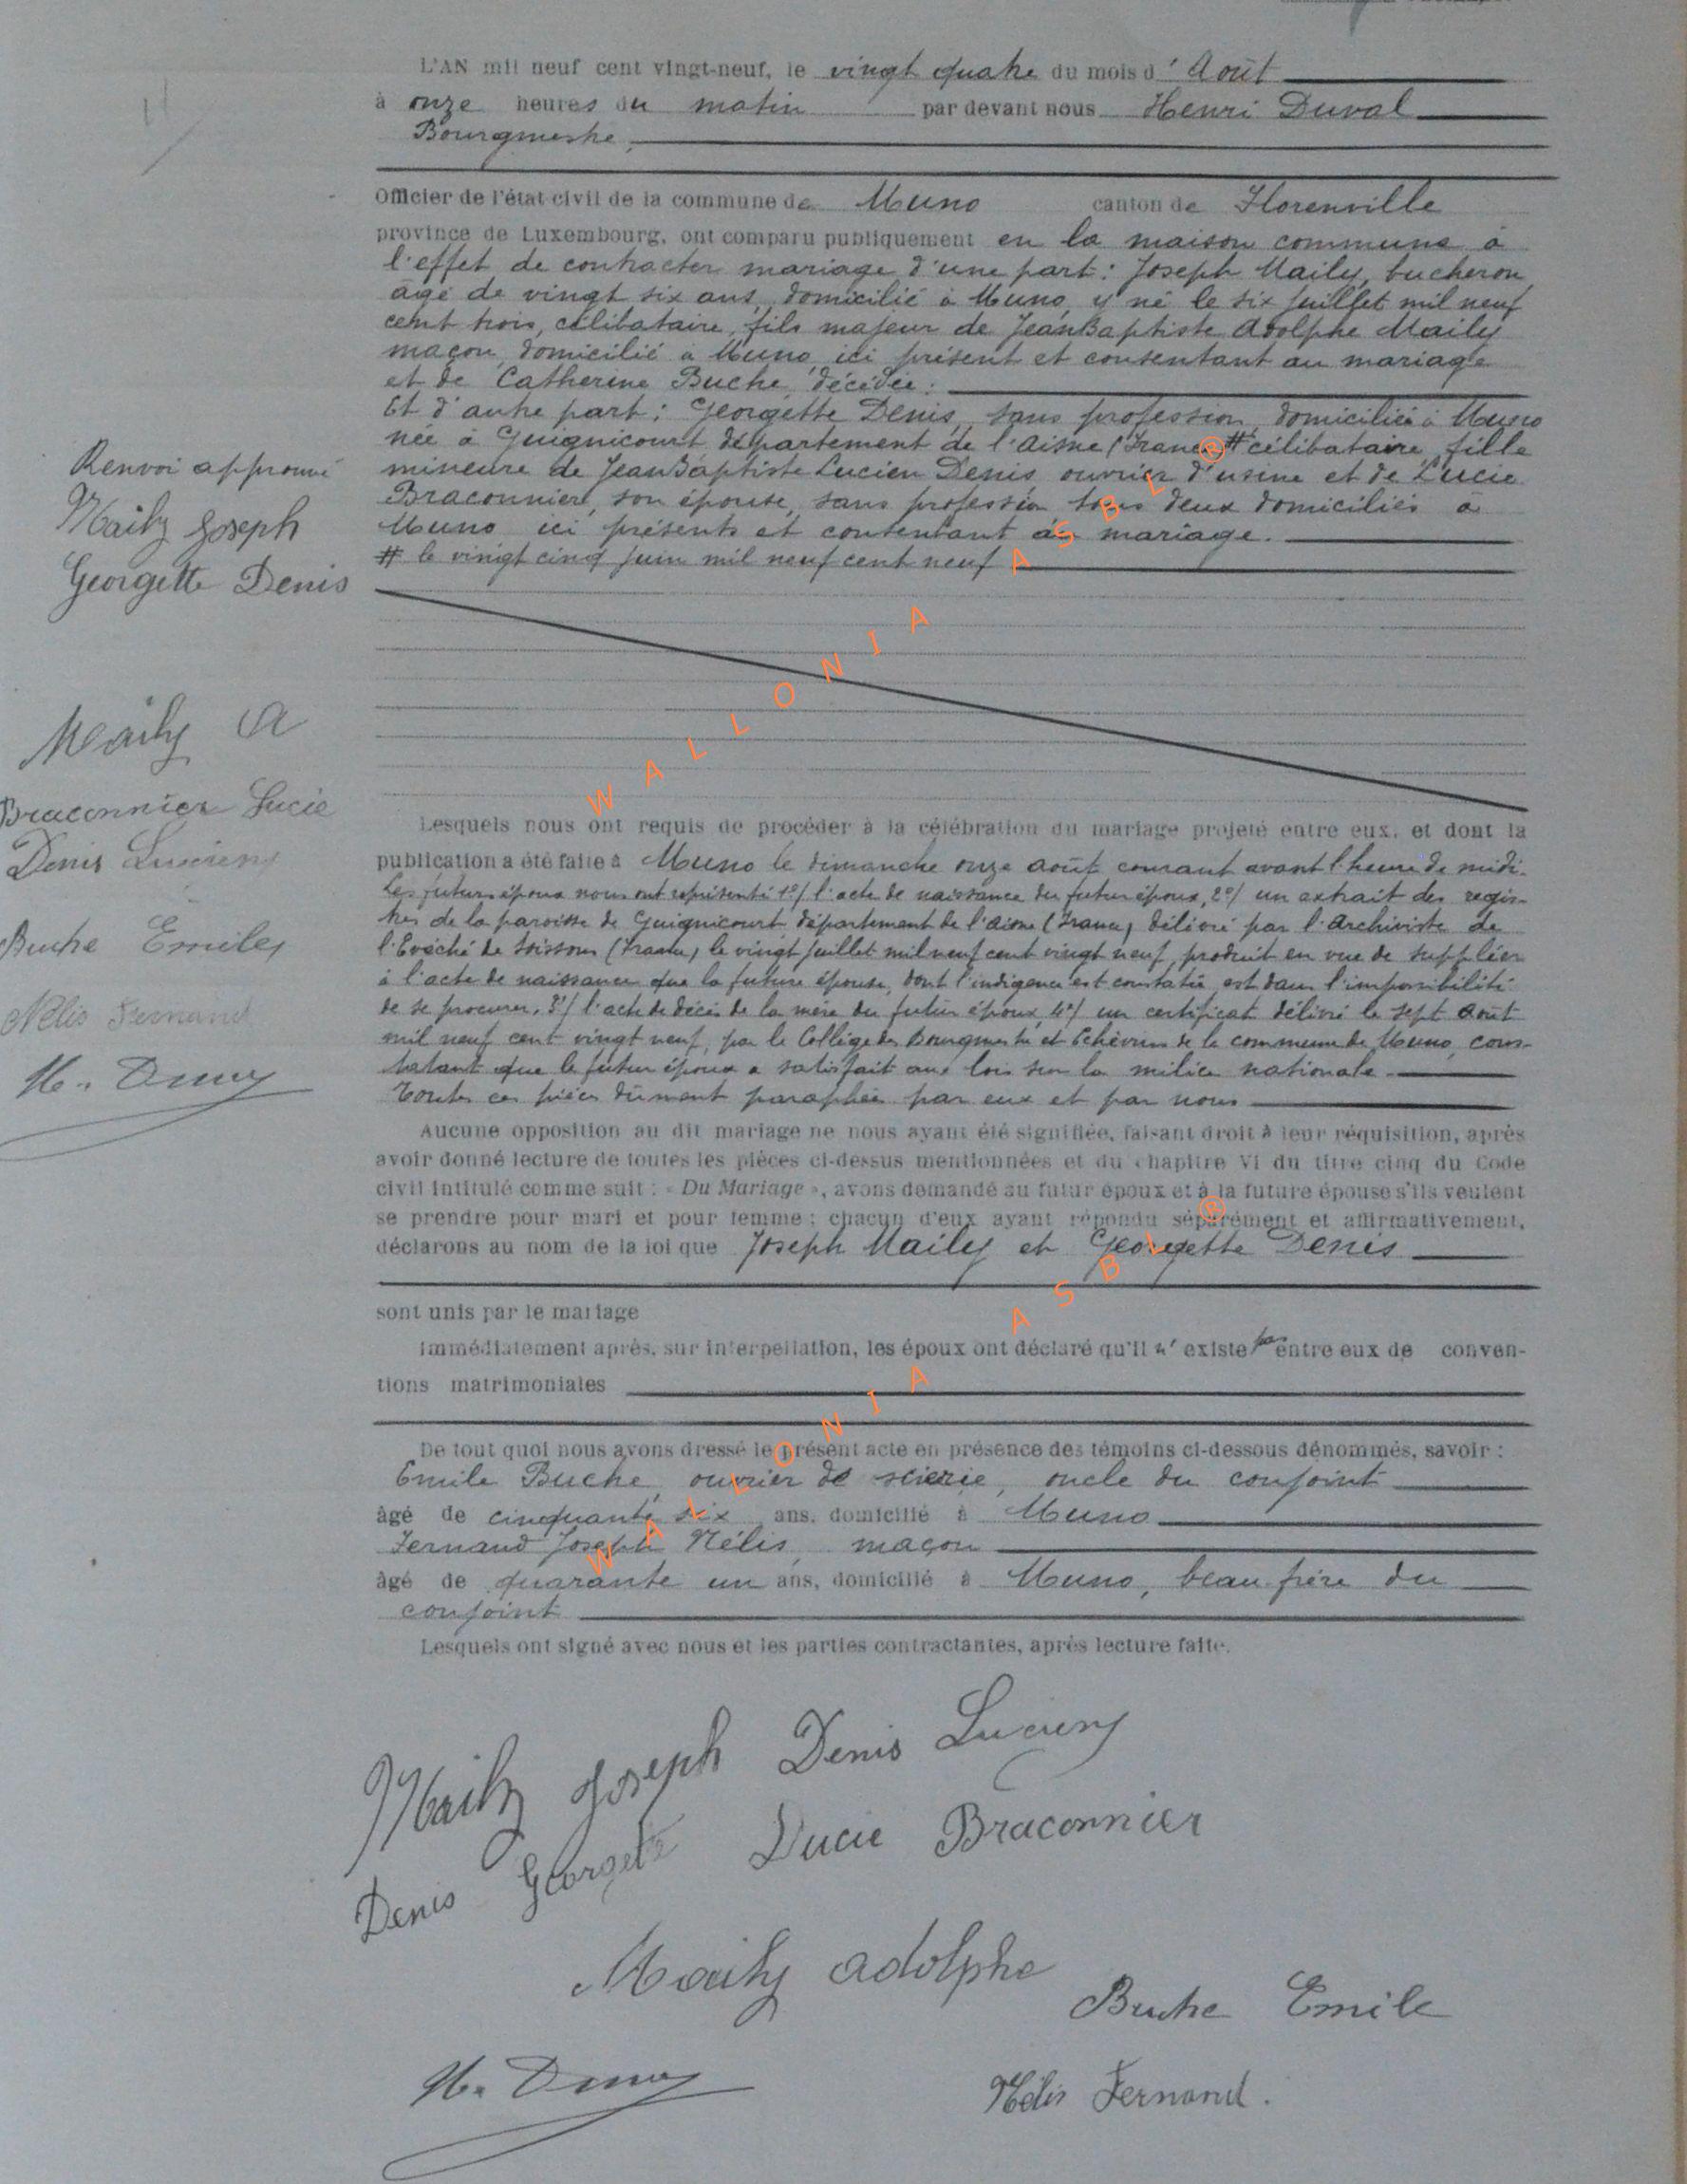 L'AN mil neuf cent vingt-neuf, le vingt quatre du mois d'Août
à onze heures du matin par devant nous Henri Duval
Bourgmestre,
Officier de l'état civil de la commune de Muno canton de Florenville
province de Luxembourg, ont comparu publiquement en la maison commune à
l'effet de contracter mariage d'une part : Joseph Maily, bucheron
âgé de vingt six ans, domicilié à Muno, y né le six juillet mil neuf
cent trois, célibataire, fils majeur de Jean Baptiste Adolphe Maily
maçon, domicilié à Muno, ici présent et consentant au mariage
et de Catherine Buche, décédée.
Et d'autre part : Georgette Denis, sans profession, domiciliée à Muno
née à Guignicourt département de l'Aisne (France # célibataire, fille
mineure de Jean Baptiste Lucien Denis, ouvrier d'usine et de Lucie
Braconnier, son épouse, sans profession, tous deux domiciliés à
Muno ici présents et contentant au mariage.
# le vingt cinq juin mil neuf cent neuf
Renvoi approuvé
Maily Joseph
Georgette Denis
Maily A
Braconnier Lucie
Denis Lucien
Buche Emile
Nélis Fernand
H. Duval
Lesquels nous ont requis de procéder à la célébration du mariage projeté entre eux, et dont la
publication a été faite à Muno le dimanche onze août courant avant l'heure de midi.
Les futurs époux nous ont représenté 1°/ l'acte de naissance du futur époux, 2°/ un extrait des regis-
tres de la paroisse de Guignicourt département de l'Aisne (France) délivré par l'Archiviste de
l'Evêché de Soissons (France) le vingt juillet mil neuf cent vingt neuf, produit en vue de suppléer
à l'acte de naissance que la future épouse, dont l'indigence est constatée, est dans l'impossibilité
de se procurer, 3°/ l'acte de décès de la mère du futur époux, 4°/ un certificat délivré le sept Août
mil neuf cent vingt neuf, par le Collège des Bourgmestre et Echevins de la commune de Muno, cons-
tatant que le futur époux a satisfait aux lois sur la milice nationale.
Toutes ces pièces dûment paraphées par eux et par nous
Aucune opposition au dit mariage ne nous ayant été signifiée, faisant droit à leur réquisition, après
avoir donné lecture de toutes les pièces ci-dessus mentionnées et du chapitre VI du titre cinq du Code
civil intitulé comme suit : « Du Mariage », avons demandé au futur époux et à la future épouse s'ils veulent
se prendre pour mari et pour femme ; chacun d'eux ayant répondu séparément et affirmativement,
déclarons au nom de la loi que Joseph Maily et Georgette Denis
sont unis par le mariage
Immédiatement après, sur interpellation, les époux ont déclaré qu'il n'existe pas entre eux de conven-
tions matrimoniales
De tout quoi nous avons dressé le présent acte en présence des témoins ci-dessous dénommés, savoir :
Emile Buche, ouvrier de scierie, oncle du conjoint
âgé de cinquante six ans, domicilié à Muno
Fernand Joseph Nélis, maçon
âgé de quarante un ans, domicilié à Muno, beau-frère du
conjoint
Lesquels ont signé avec nous et les parties contractantes, après lecture faite.
Maily Joseph Denis Lucien
Denis Georgette Lucie Braconnier
Maily Adolphe
Buche Emile
H. Duval
Nélis Fernand.
WALLONIA ASBL ®
WALLONIA ASBL ®